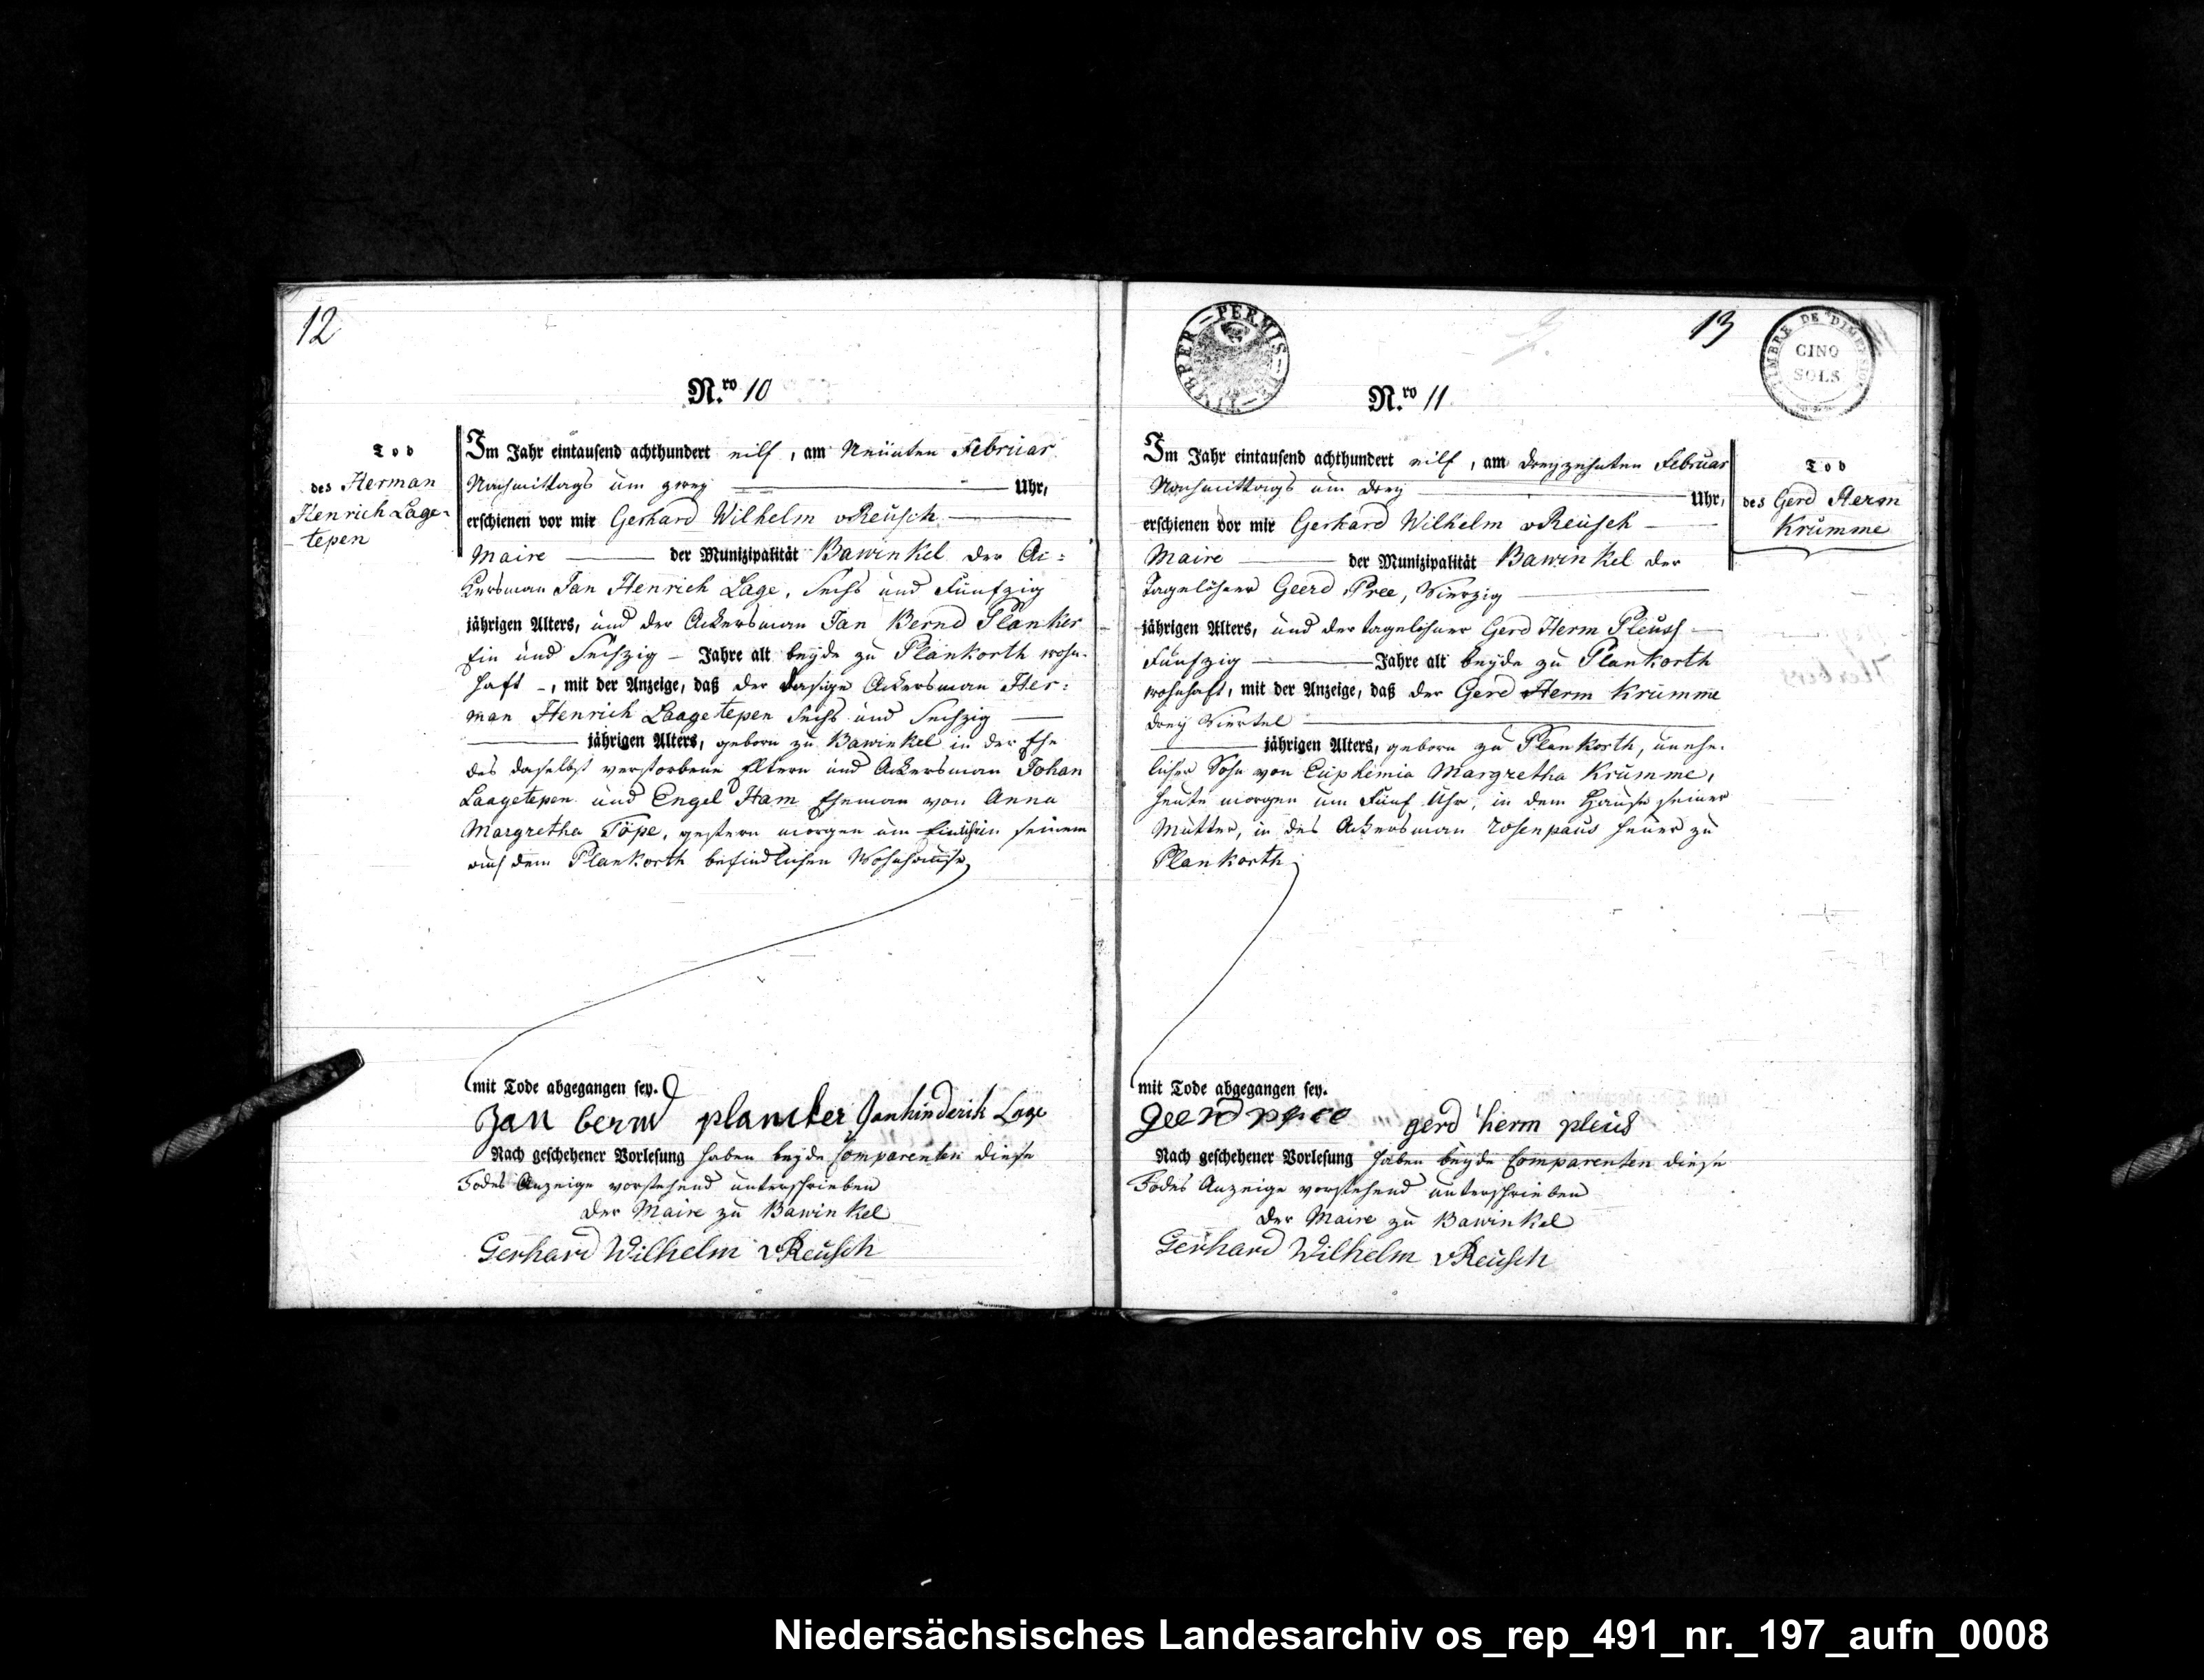 12
N.ro 10
Tod
des Herman
Henrich Lage-
tepen
Im Jahr eintausend achthundert eilf, am Neunten Februar
Nachmittags um zwey Uhr,
erschienen vor mir Gerhard Wilhelm vReusch
Maire der Munizipalität Bawinkel der Ac:
kersman Jan Henrich Lage, Sechs und Funfzig
jährigen Alters, und der Ackersman Jan Bernd Planker
Ein und Sechzig Jahre alt beyde zu Plankorth wohn-
haft, mit der Anzeige, daß der dasige Ackersman Her:
man Henrich Laagetepen Sechs und Sechzig
jährigen Alters, geborn zu Bawinkel in der Ehe
des daselbst verstorbene Eltern und Ackersman Johan
Laagetepen und Engel Ham Eheman von Anna
Margretha Töpe, gestern morgen um seinem
auf dem Plankorth befindlichen Wohnhause
mit Tode abgegangen sey.
Jan bernd plancker Janhinderik Lage
Nach geschehener Vorlesung haben beyde Comparenten diese
Todes Anzeige vorstehend unterschrieben
Der Maire zu Bawinkel
Gerhard Wilhelm vReusch
13
TIMBRE DE DIMENSION
CINQ
SOLS
N.ro 11
Tod
des Gerd Herm
Krumme
Im Jahr eintausend achthundert eilf, am dreyzehnten Februar
Nachmittags um drey Uhr,
erschienen vor mir Gerhard Wilhelm vReusch
Maire der Munizipalität Bawinkel der
Tagelöhner Geerd Pree, Vierzig
jährigen Alters, und der tagelöhner Gerd Herm Pleuss
Funfzig Jahre alt beyde zu Plankorth
wohnhaft, mit der Anzeige, daß der Gerd Herm Krumme
drey Viertel
jährigen Alters, geborn zu Plankorth, unehe-
licher Sohn von Euphemia Margretha Krumme,
heute morgen um Fünf Uhr, in dem Hause seiner
Mutter, in des Ackersman rosenpaus heuer zu
Plankorth
mit Tode abgegangen sey.
geerd pree gerd herm pleus
Nach geschehener Vorlesung haben beyde Comparenten diese
Todes Anzeige vorstehend unterschrieben
Der Maire zu Bawinkel
Gerhard Wilhelm vReusch
Niedersächsisches Landesarchiv os_rep_491_nr._197_aufn_0008